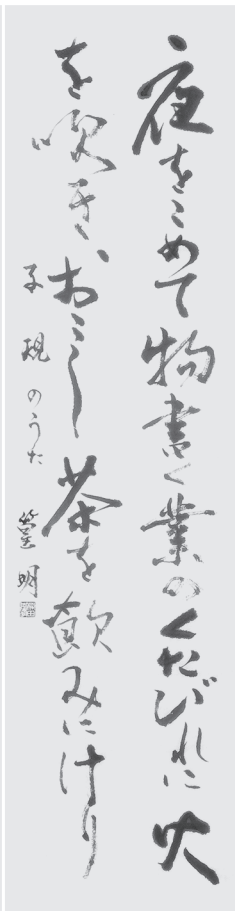 夜をこめて物書く業のくたびれに火
を吹きおこし茶を飲みにけり
子規のうた 瑩明